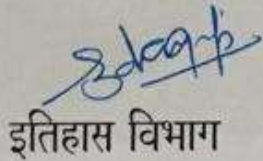 इतिहास विभाग